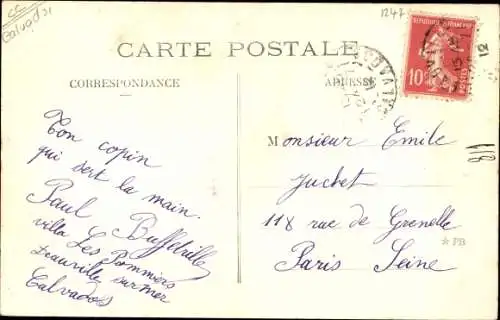 CC
Calvados
1247
CARTE POSTALE
CORRESPONDANCE
ADRESSE
REPUBLIQUE FRANÇAISE
10
POSTES
Ton copin
qui sert la main.
Paul Buffetrille
villa Les Pommiers
Deauville sur mer
Calvados
Monsieur Emile
Juchet
118 rue de Grenelle
Paris Seine
118
* PB